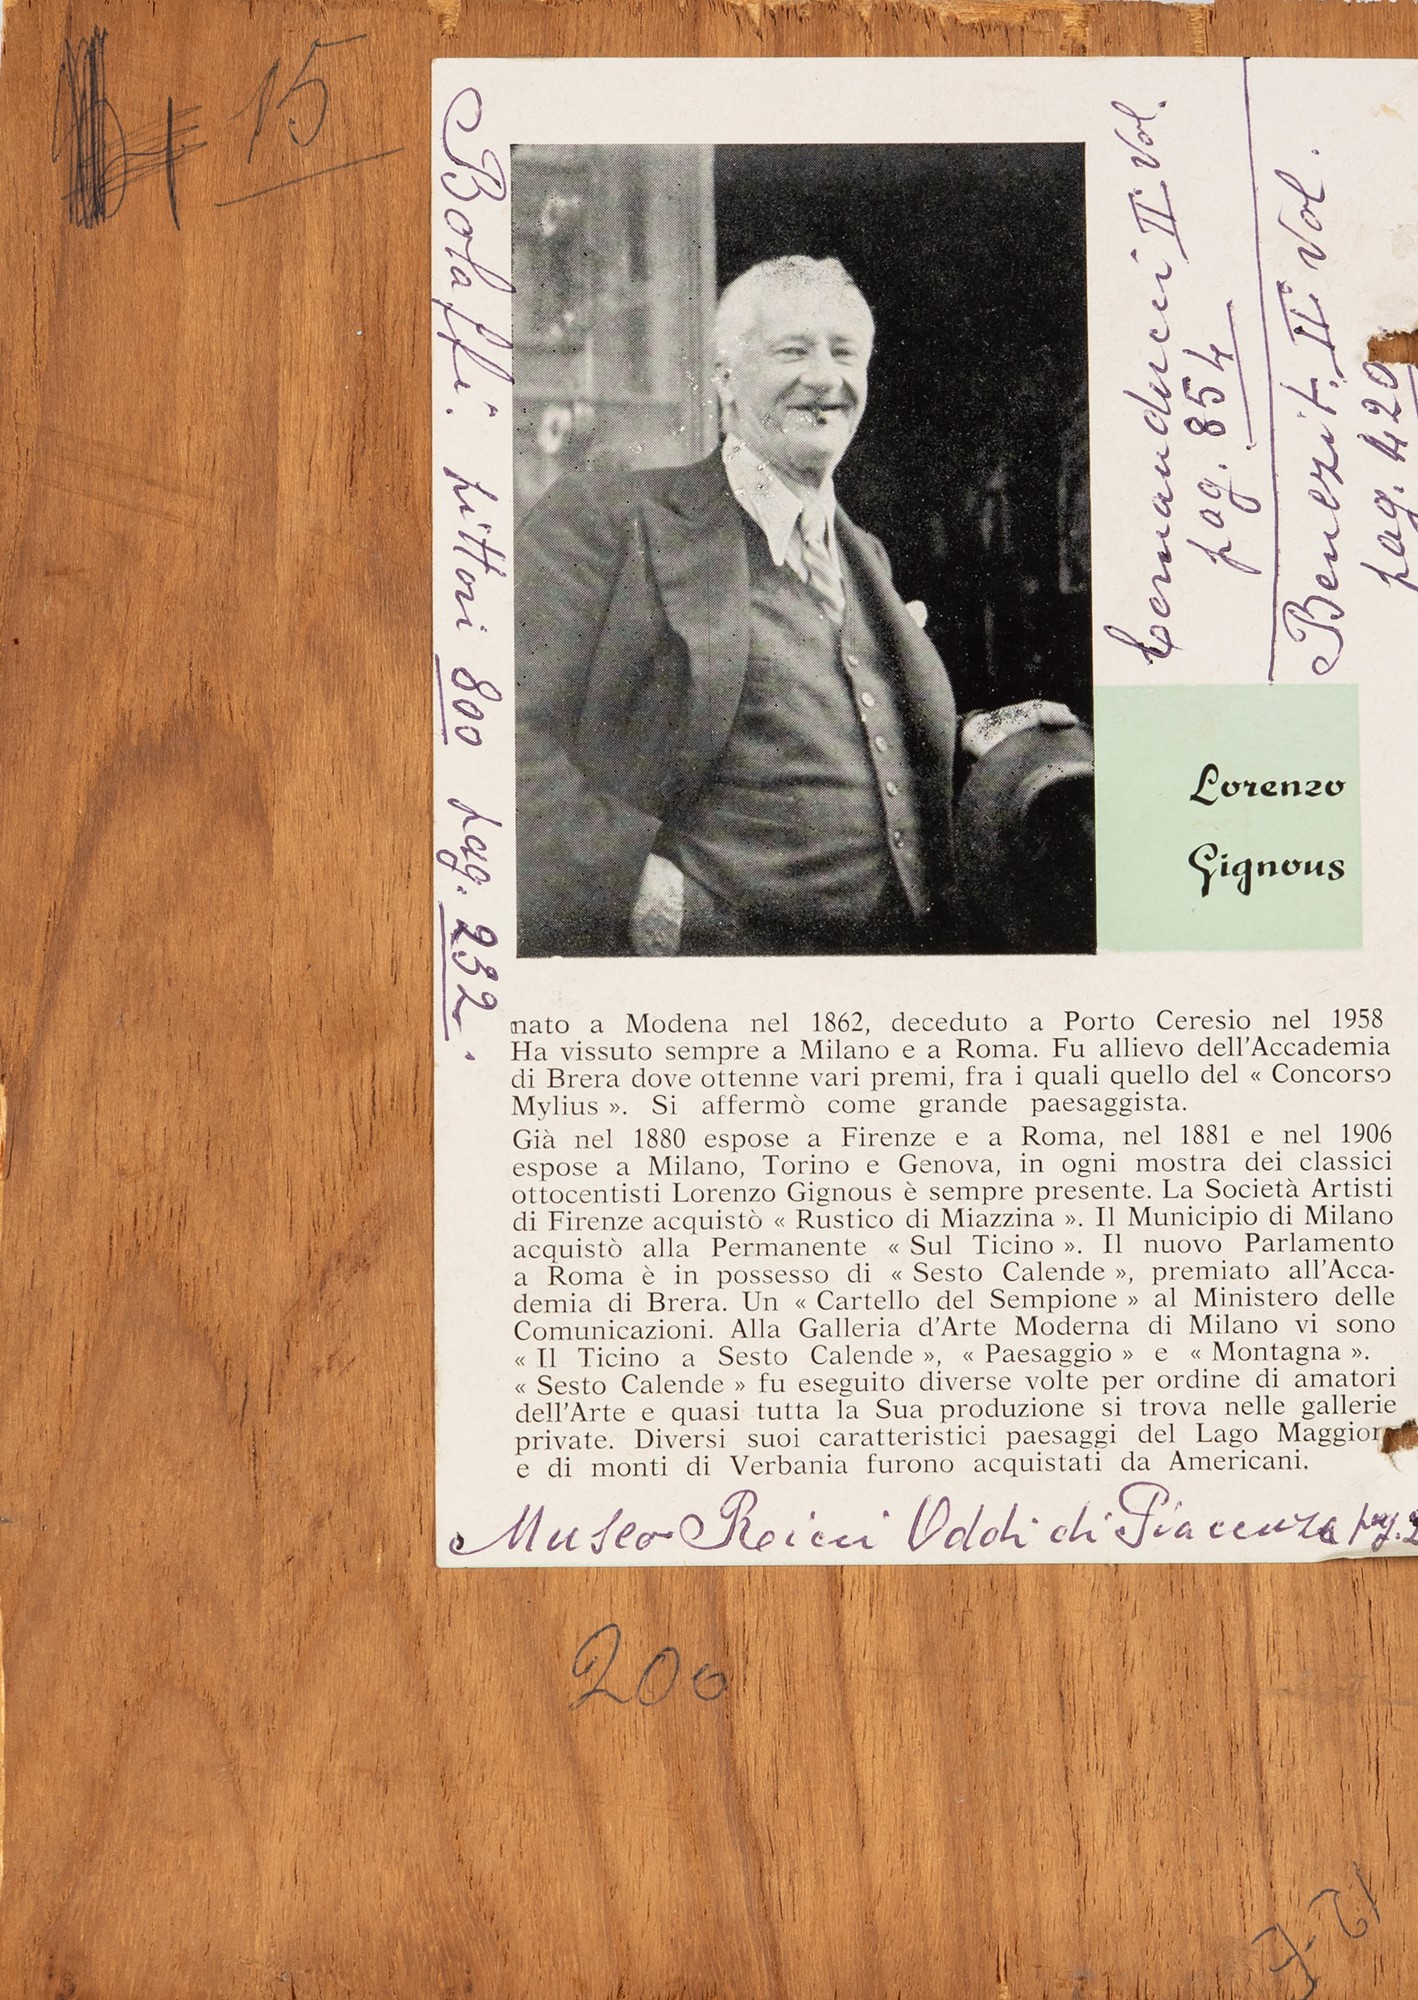 15
Bolaffi. Pittori 800 pag. 232.
Comanducci II Vol.
pag. 854
Benezit. II Vol.
pag. 420
Lorenzo
Gignous
nato a Modena nel 1862, deceduto a Porto Ceresio nel 1958
Ha vissuto sempre a Milano e a Roma. Fu allievo dell'Accademia
di Brera dove ottenne vari premi, fra i quali quello del « Concorso
Mylius ». Si affermò come grande paesaggista.
Già nel 1880 espose a Firenze e a Roma, nel 1881 e nel 1906
espose a Milano, Torino e Genova, in ogni mostra dei classici
ottocentisti Lorenzo Gignous è sempre presente. La Società Artisti
di Firenze acquistò « Rustico di Miazzina ». Il Municipio di Milano
acquistò alla Permanente « Sul Ticino ». Il nuovo Parlamento
a Roma è in possesso di « Sesto Calende », premiato all'Acca-
demia di Brera. Un « Cartello del Sempione » al Ministero delle
Comunicazioni. Alla Galleria d'Arte Moderna di Milano vi sono
« Il Ticino a Sesto Calende », « Paesaggio » e « Montagna ».
« Sesto Calende » fu eseguito diverse volte per ordine di amatori
dell'Arte e quasi tutta la Sua produzione si trova nelle gallerie
private. Diversi suoi caratteristici paesaggi del Lago Maggior
e di monti di Verbania furono acquistati da Americani.
Museo Ricci Oddi di Piacenza pag. 2
200